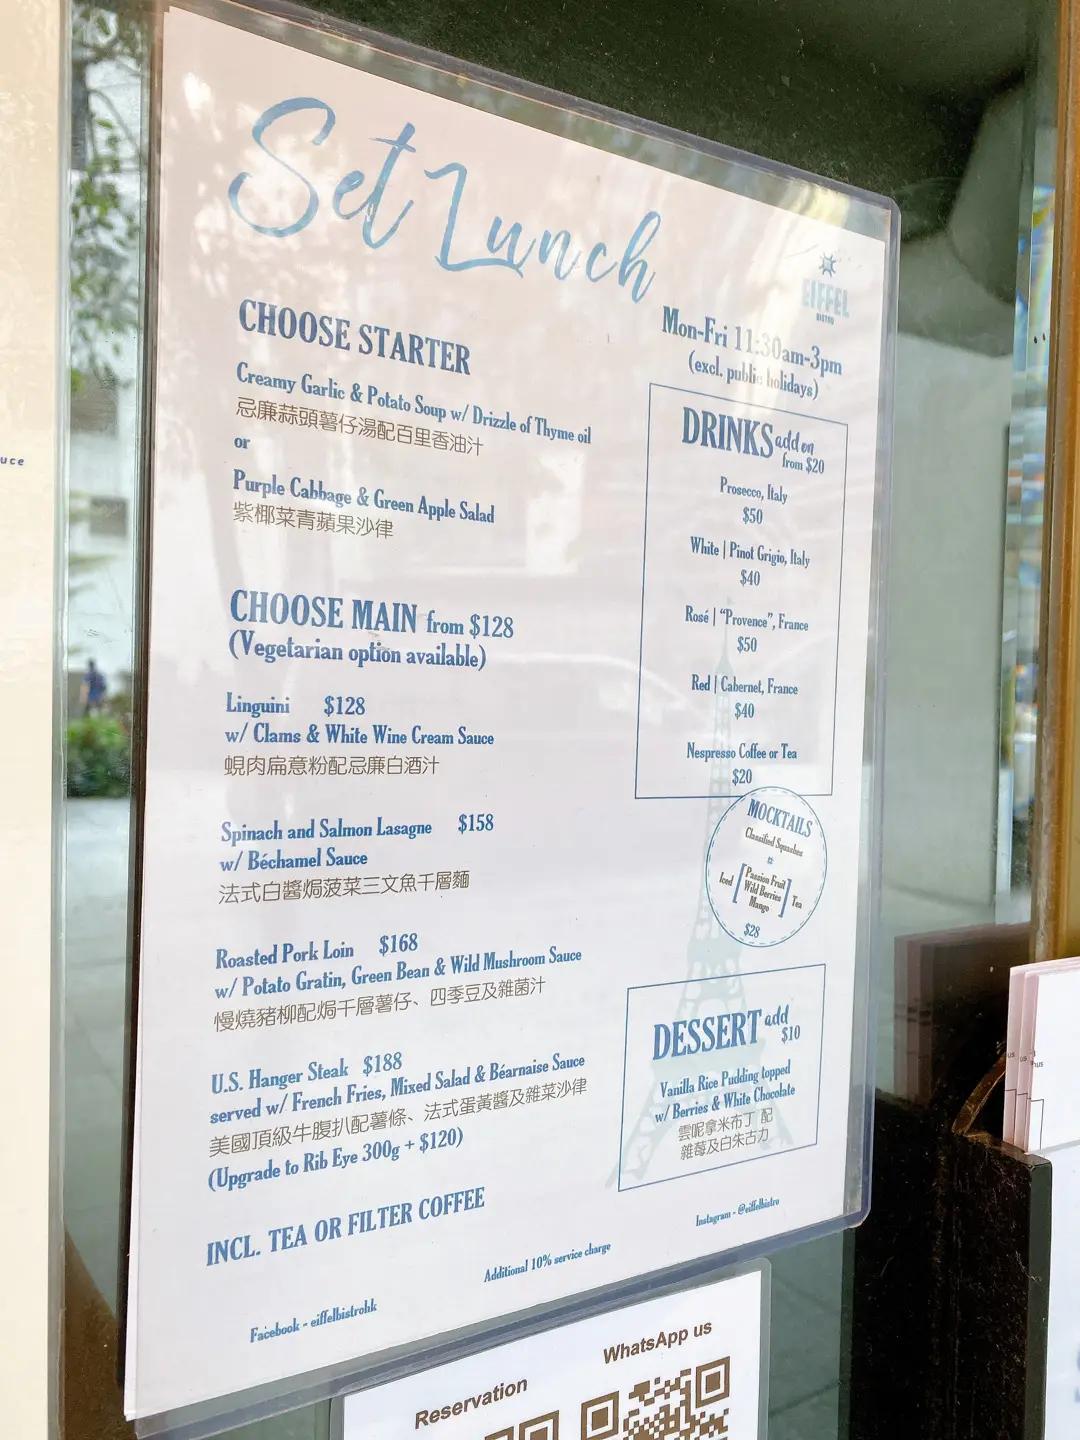 Set Lunch
EIFFEL
BISTRO
Mon-Fri 11:30am-3pm
(excl. public holidays)
CHOOSE STARTER
Creamy Garlic & Potato Soup w/ Drizzle of Thyme oil
忌廉蒜頭薯仔湯配百里香油汁
or
Purple Cabbage & Green Apple Salad
紫椰菜青蘋果沙律
CHOOSE MAIN from $128
(Vegetarian option available)
Linguini $128
w/ Clams & White Wine Cream Sauce
蜆肉扁意粉配忌廉白酒汁
Spinach and Salmon Lasagne $158
w/ Béchamel Sauce
法式白醬焗菠菜三文魚千層麵
Roasted Pork Loin $168
w/ Potato Gratin, Green Bean & Wild Mushroom Sauce
慢燒豬柳配焗千層薯仔、四季豆及雜菌汁
U.S. Hanger Steak $188
served w/ French Fries, Mixed Salad & Béarnaise Sauce
美國頂級牛腹扒配薯條、法式蛋黃醬及雜菜沙律
(Upgrade to Rib Eye 300g + $120)
INCL. TEA OR FILTER COFFEE
DRINKS add on
from $20
Prosecco, Italy
$50
White | Pinot Grigio, Italy
$40
Rosé | "Provence", France
$50
Red | Cabernet, France
$40
Nespresso Coffee or Tea
$20
MOCKTAILS
Classified Squashes
Iced [Passion Fruit
Wild Berries
Mango] Tea
$28
DESSERT add
$10
Vanilla Rice Pudding topped
w/ Berries & White Chocolate
雲呢拿米布丁 配
雜莓及白朱古力
Instagram - @eiffelbistro
Additional 10% service charge
Facebook - eiffelbistrohk
Reservation
WhatsApp us
uce